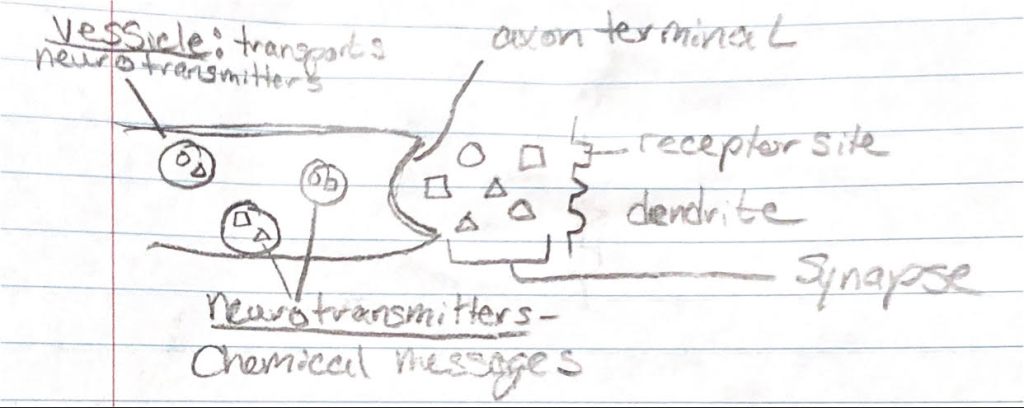 Vessicle: transports
neurotransmitters
axon terminal
receptor site
dendrite
Synapse
neurotransmitters-
Chemical messages